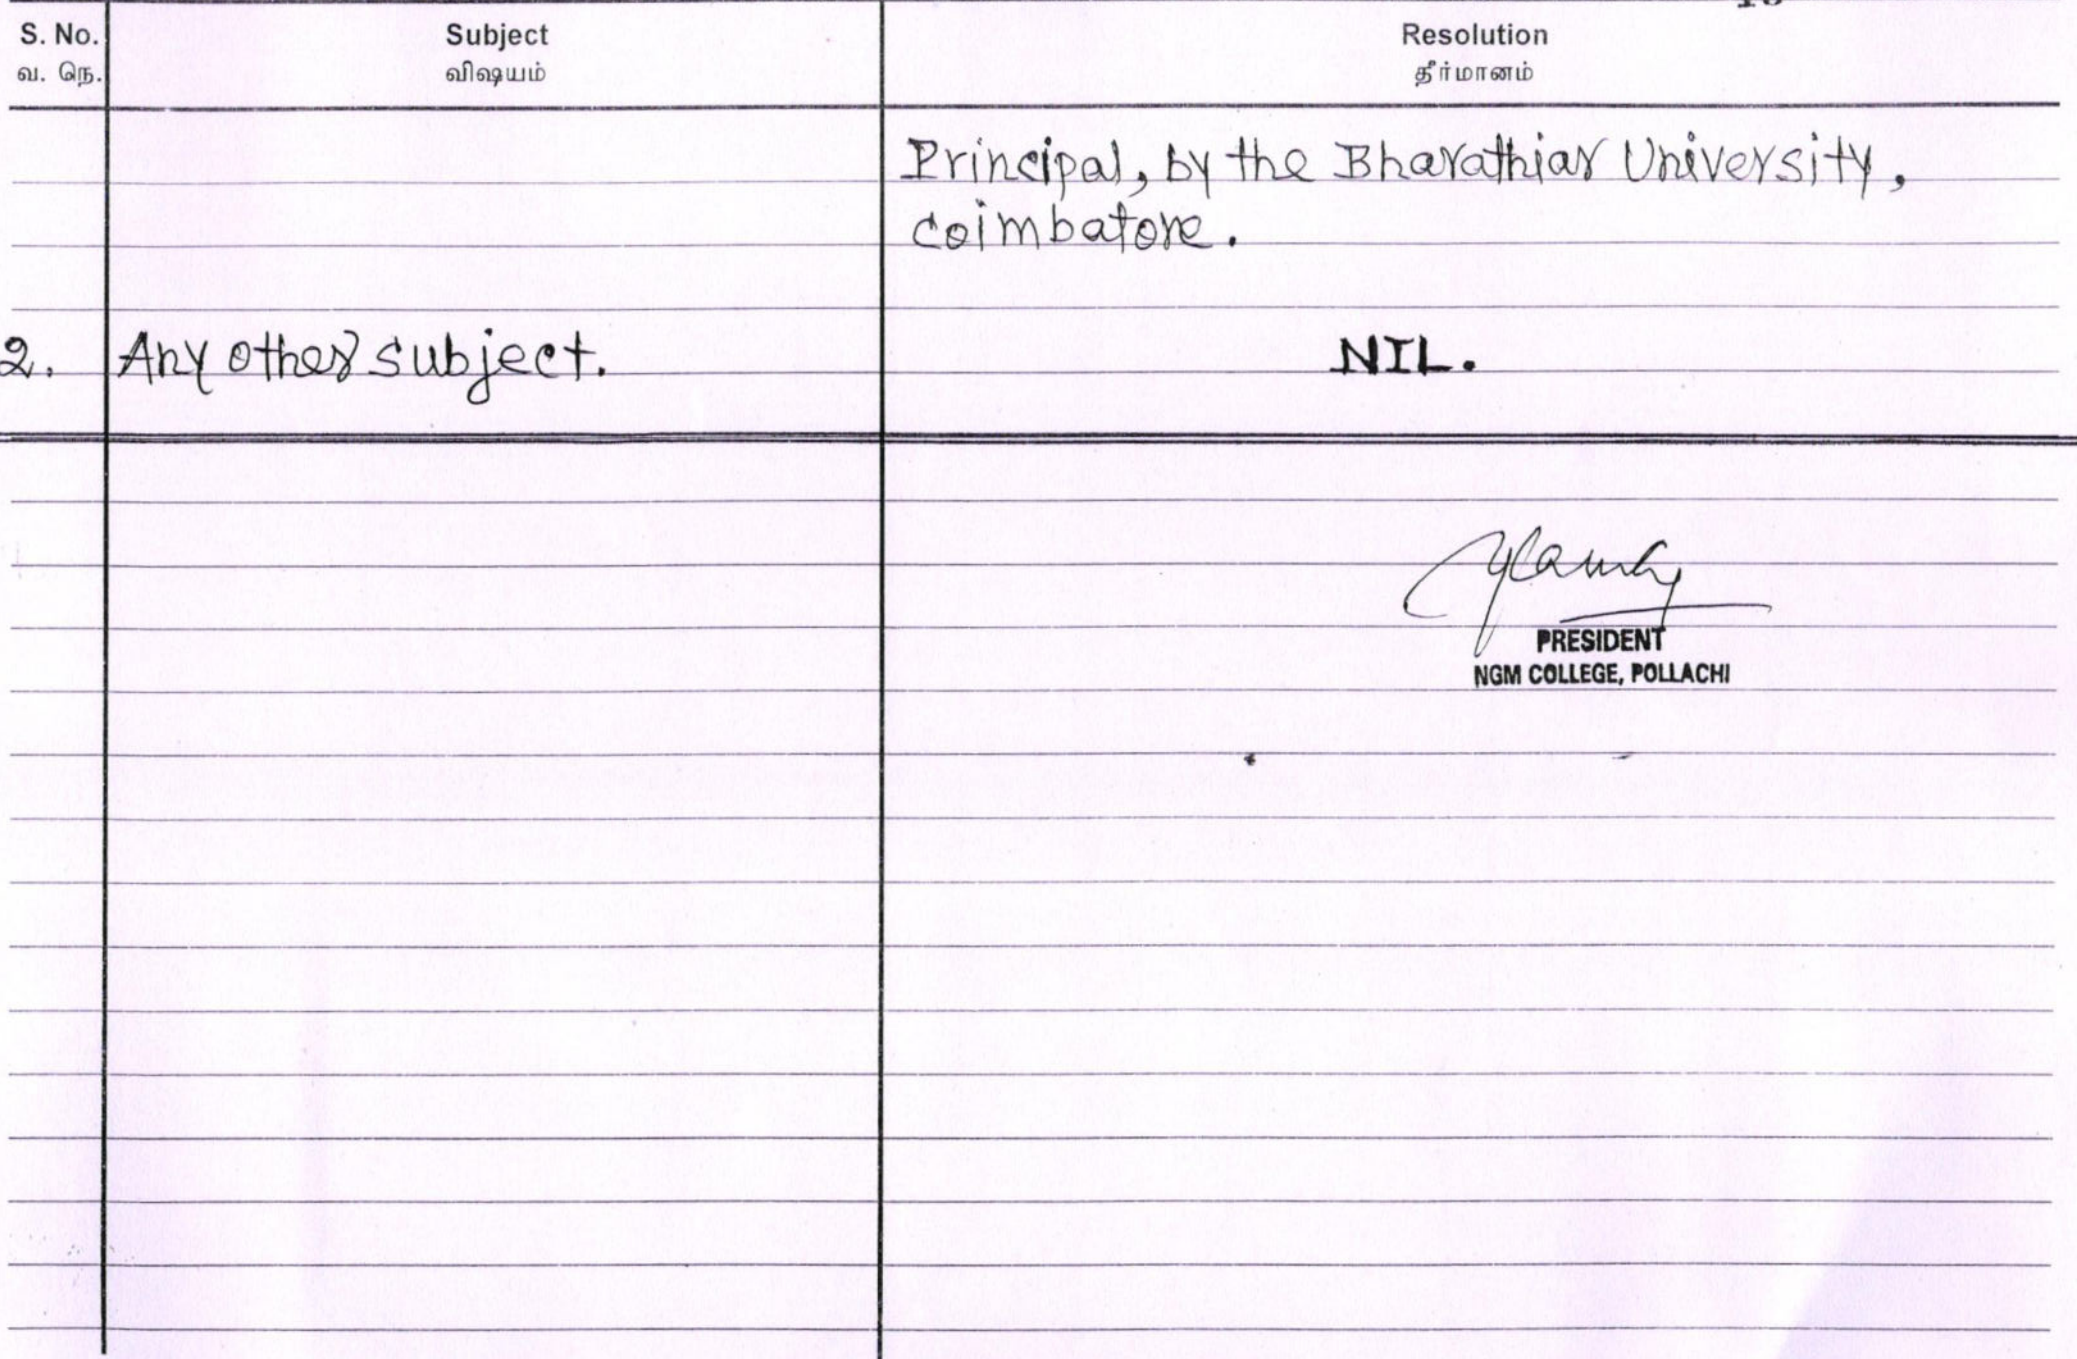 S. No. Subject Resolution
வ. நெ. விஷயம் தீர்மானம்
Principal, by the Bharathiar University,
Coimbatore.
2. Any other subject. NIL.
PRESIDENT
NGM COLLEGE, POLLACHI